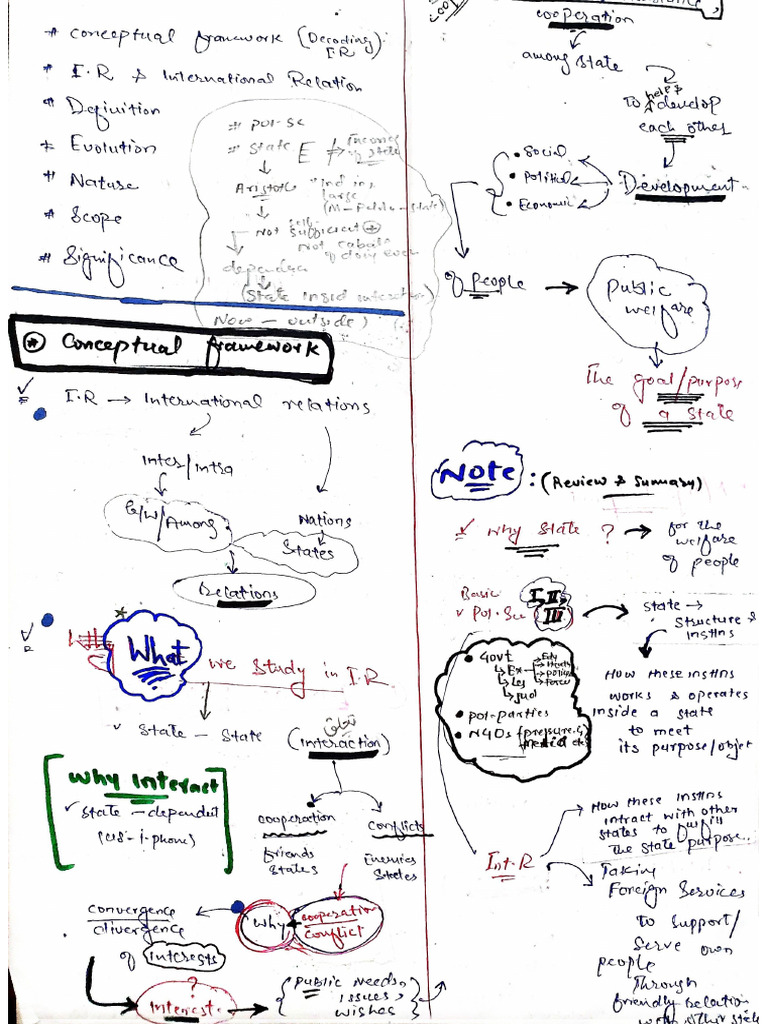 * Conceptual framework (Decoding I.R)
* I.R & International Relation
* Definition
* Evolution
* Nature
* Scope
* Significance
# Pol-Sc
# State E
Aristotle
not sufficient
dependen
(State insid interaction)
Now - outside)
* Conceptual framework
I.R → International relations
Inter/Intra
B/W/Among
Nations
States
Relations
What
we study in I.R
State - State
تعلق
(interaction)
Why Interact
State - dependent
(US - i-phone)
cooperation
Conflicts
friends
States
Enemies
States
cooperation
conflict
why
convergence
divergence
of interests
?
Interest
Public Needs,
issues,
wishes
cooperation
among state
help
To develop
each other
Development
• Social
• Political
• Economic
of people
Public
welfare
The goal/purpose
of a State
Note: (Review & Summary)
why State ?
for the
welfare
of people
Basic
Pol-Sc
I, II,
III
State →
Structure &
Insttns
• Govt
Ex
Leg
Jud
Police
Force
• pol-parties
• NGOs (pressure.G
media etc)
How these insttns
works & operates
inside a state
to meet
its purpose/object
Int.R
How these Insttns
intract with other
states to fulfill
the state purpose..
Taking
Foreign Services
to support/
Serve own
people
Through
friendly relation
with other state